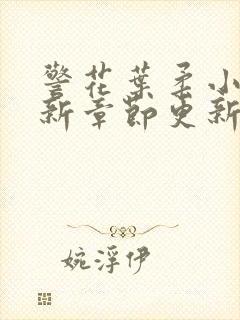 警花葉柔小
新章節更新
婉浮伊